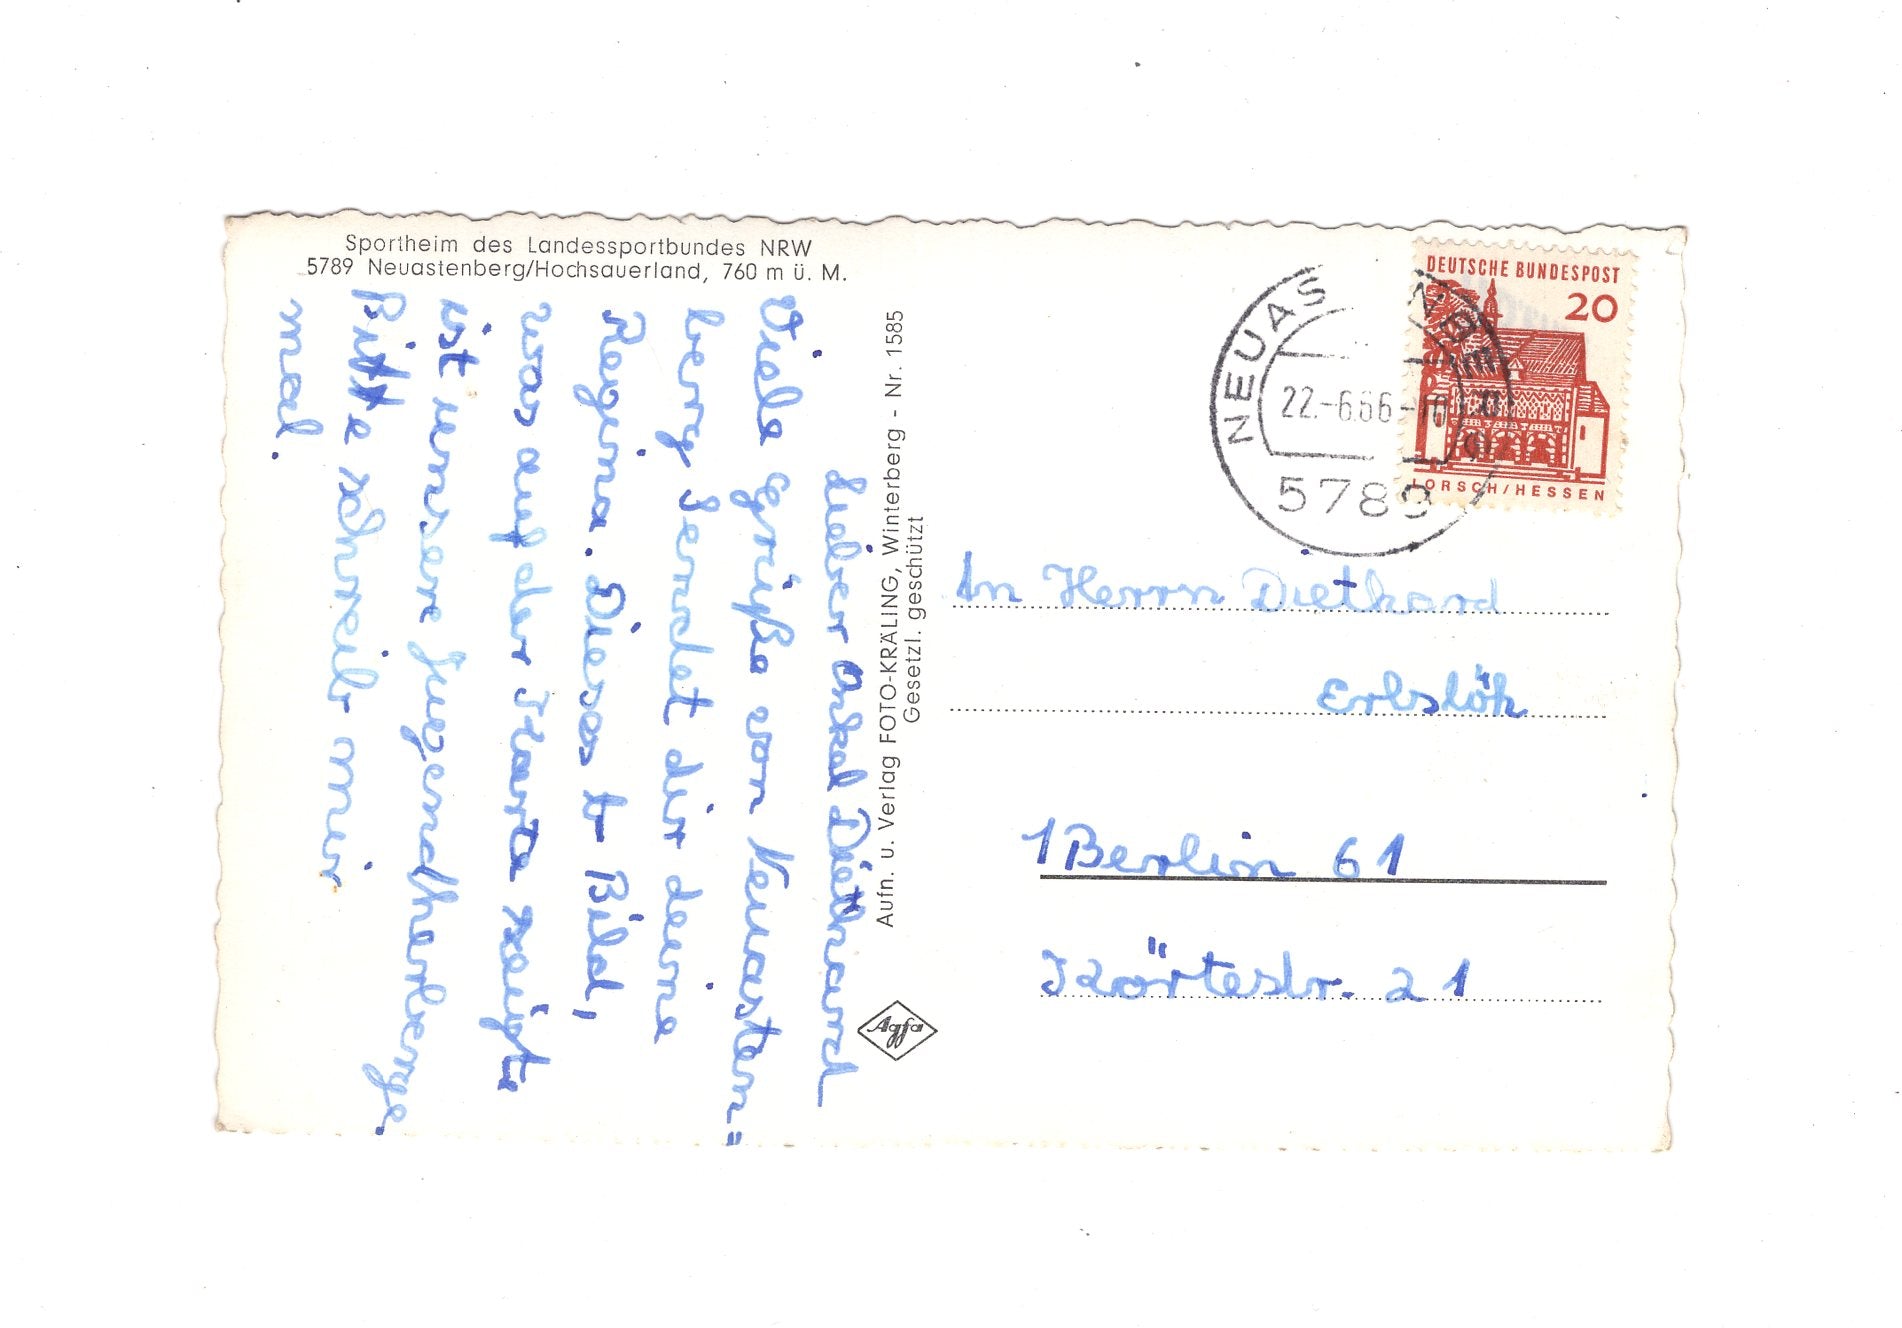 Sportheim des Landessportbundes NRW
5789 Neuastenberg/Hochsauerland, 760 m ü. M.
Lieber Onkel Diethard
Viele Grüße von Neuasten=
berg sendet dir deine
Regina. Dieses Bild,
was auf der Karte zeigt
ist unsere Jugendherberge.
Bitte schreib mir
mal.
Aufn. u. Verlag FOTO-KRÄLING, Winterberg - Nr. 1585
Gesetzl. geschützt
Agfa
DEUTSCHE BUNDESPOST
20
LORSCH/HESSEN
22.-6.66-10
5789
An Herrn Diethard
Erbslöh
1 Berlin 61
Körtestr. 21